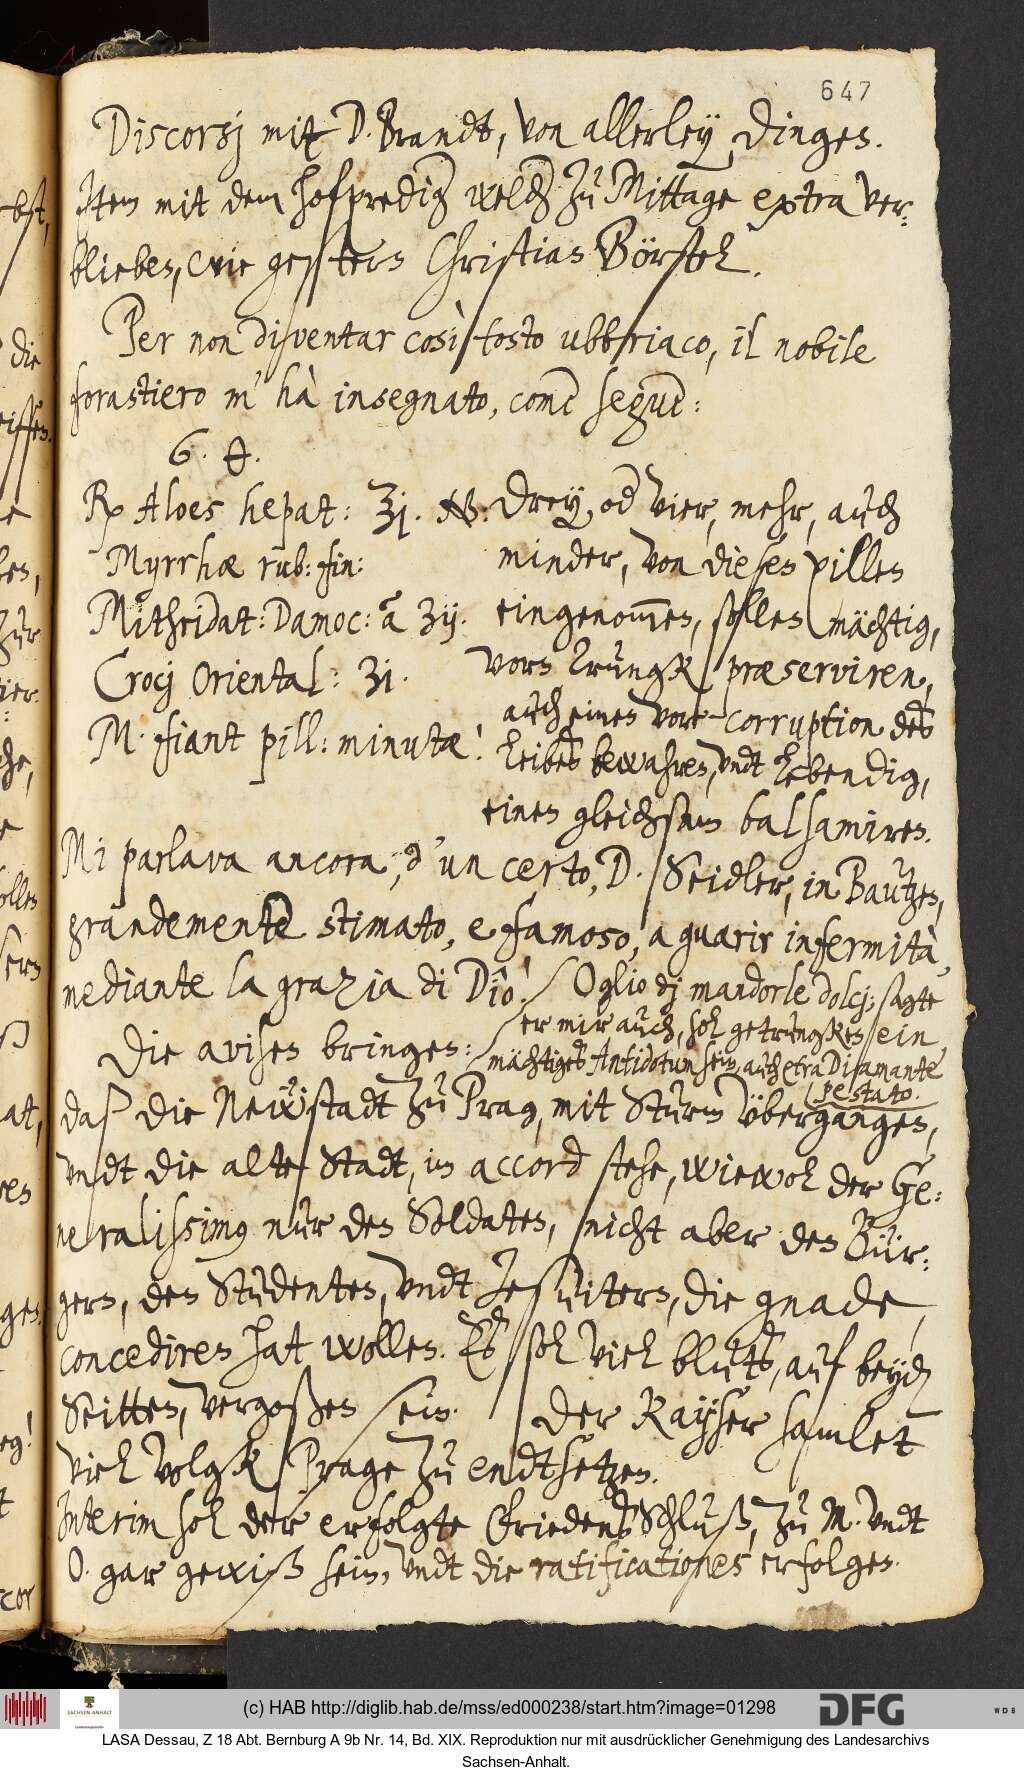 647
Discorsj mit D. Brandt, von allerley dingen.
Item mit dem hofpredig. welch. zu Mittage extra ver¬
blieben, wie gestern Christian Börstel.
Per non diventar così tosto ubbriaco, il nobile
forastiero m' hà insegnato, come segue:
Rx Aloes hepat: ʒj.
Myrrhæ rub: fin:
Mithridat: Damoc: ā ʒij.
Crocj Oriental: ʒi.
M. fiant pill: minutæ!
NB: Drey, od vier, mehr, auch
minder, von diesen pillen
eingenom̅en, sollen mächtig,
vorn Trungk præserviren,
auch einen vor corruption des
Leibes bewahren, undt Lebendig,
einen gleichsam balsamiren.
Mi parlava ancora, d'un certo, D. Seidler, in Bautzen,
grandemente stimato, e famoso, a guarir infermità,
mediante la grazia di Dio!
Oglio dj mandorle dolcj: sagte
er mir auch, sol getrungken ein
mächtiges Antidotum sein, auch contra Diamante
pestato.
Die avisen bringen:
daß die Neẅstadt zu Prag, mit Sturm übergangen,
undt die alte Stadt, in accord stehe, wiewol der Ge¬
neralissimus nur den Soldaten, nicht aber den Bür¬
gern, den Studenten, undt Jesuitern, die gnade,
concediren hat wollen. Es sol viel bluts, auf beyden
Seitten, vergoßen sein. Der Kayser samlet
viel Volgk Prage zu endtsetzen.
Interim sol der erfolgte Friedens Schluß, zu M. undt
O. gar gewiß sein, undt die ratificationes erfolgen.
(c) HAB http://diglib.hab.de/mss/ed000238/start.htm?image=01298
DFG
WDB
SACHSEN-ANHALT
LASA Dessau, Z 18 Abt. Bernburg A 9b Nr. 14, Bd. XIX. Reproduktion nur mit ausdrücklicher Genehmigung des Landesarchivs
Sachsen-Anhalt.